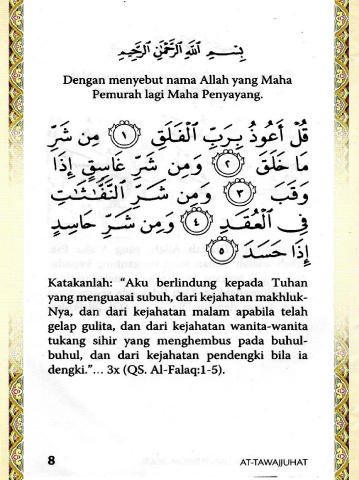 بِسْمِ اللَّهِ الرَّحْمَٰنِ الرَّحِيمِ
Dengan menyebut nama Allah yang Maha
Pemurah lagi Maha Penyayang.
قُلْ أَعُوذُ بِرَبِّ الْفَلَقِ ١ مِن شَرِّ
مَا خَلَقَ ٢ وَمِن شَرِّ غَاسِقٍ إِذَا
وَقَبَ ٣ وَمِن شَرِّ النَّفَّاثَاتِ
فِي الْعُقَدِ ٤ وَمِن شَرِّ حَاسِدٍ
إِذَا حَسَدَ ٥
Katakanlah: “Aku berlindung kepada Tuhan
yang menguasai subuh, dari kejahatan makhluk-
Nya, dan dari kejahatan malam apabila telah
gelap gulita, dan dari kejahatan wanita-wanita
tukang sihir yang menghembus pada buhul-
buhul, dan dari kejahatan pendengki bila ia
dengki.”... 3x (QS. Al-Falaq:1-5).
8 AT-TAWAJJUHAT